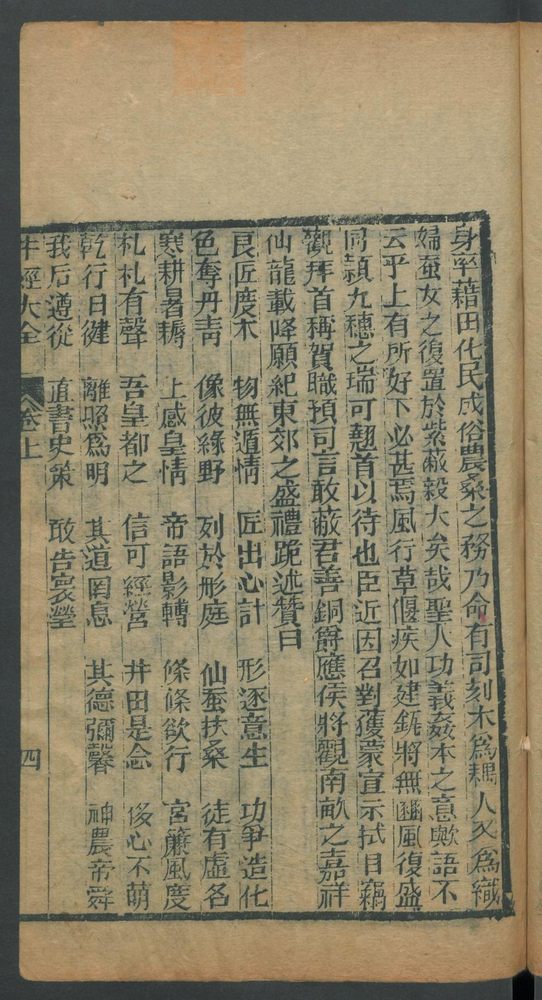 身率藉田化民成俗農桑之務乃命有司刻木爲耦人又爲織
婦蚕女之復置於紫蔽毅大矣哉聖人功義姦本之意歟語不
云乎上有所好下必甚焉風行草偃疾如建瓴將無豳風復盛
同頴九穗之瑞可翹首以待也臣近因召對獲蒙宣示拭目竊
觀拜首稱賀職頊司言敢蔽君善銅爵應侯將觀南畝之嘉祥
仙龍載降願紀東郊之盛禮跪述贊曰
良匠度木 物無遁情 匠出心計 形逐意生 功爭造化
色奪丹靑 像彼緑野 列於形庭 仙蚕扶桑 徒有虛名
寒耕暑耨 上感皇情 帝語影轉 條條欲行 宮簾風度
札札有聲 吾皇都之 信可經營 井田是念 侈心不萌
乾行日健 離照爲明 其道罔息 其德彌馨 神農帝舜
我后遵從 直書史策 敢告寰瀛
牛經大全 卷上 四